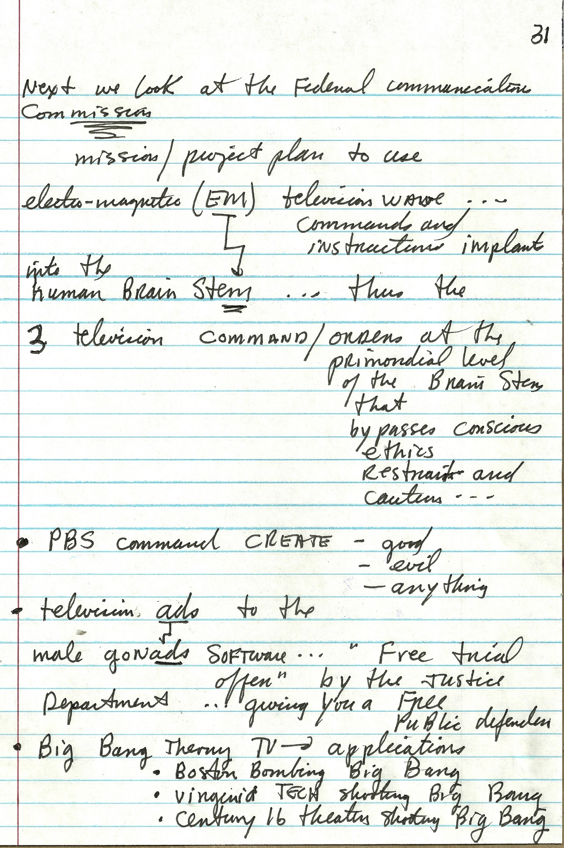 31
Next we look at the Federal communication
Commission
mission/project plan to use
electro-magnetic (EM) television wave ...
commands and
instructions implant
into the
human Brain Stem ... thus the
3 television COMMAND/ORDERS at the
primordial level
of the Brain Stem
that
bypasses conscious
ethics
Restraint and
caution ---
• PBS command CREATE - good
- evil
- anything
• television ads to the
male gonads SOFTWARE ... " Free trial
offer" by the Justice
Department ... giving you a Free
Public defender
• Big Bang Theory TV → applications
• Boston Bombing Big Bang
• virginia TECH shooting Big Bang
• century 16 theater shooting Big Bang